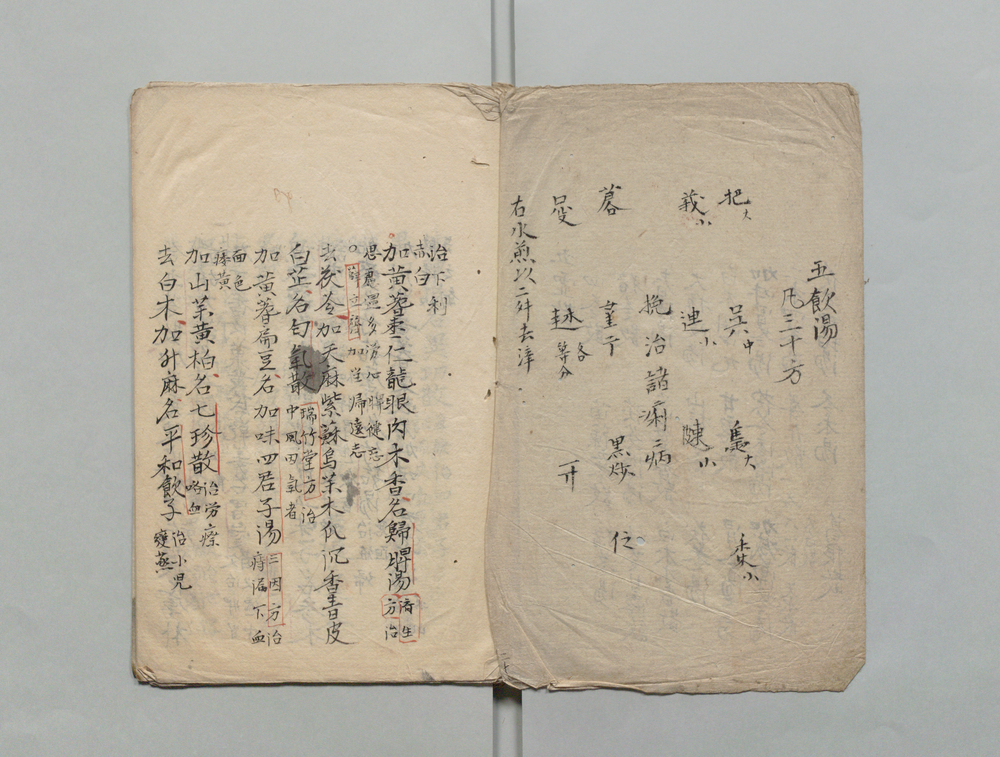 五飲湯
凡三十方
把大 吴中 馬大 棗小
義小 連小 陳小
挽治諸痢病
蓉 菫丁 黒炒 仁
趂 各等分 一廾
右水煎以二舛去滓
治下利
赤白
加黄蓍棗仁龍眼肉木香名歸脾湯 済生方治
思慮過多労心脾健忘
〇薛立齋加当帰遠志
去茯苓加天麻紫蘇烏芙木瓜沉香青皮
白芷名匀氣散 瑞竹堂方治
中風四氣者
加黄蓍扁豆名加味四君子湯 三因方治
痔漏下血
面色
㾪黄
加山芙黄柏名七珍散 治労瘵
咯血
去白木加升麻名平和飲子 治小児
變蒸